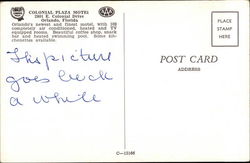 COLONIAL PLAZA MOTEL
2801 E. Colonial Drive
Orlando, Florida
Orlando's newest and finest motel, with 108
completely air conditioned, heated and TV
equipped rooms. Beautiful coffee shop, snack
bar and heated swimming pool. Some kit-
chenettes available.
AAA
This picture
goes back
a while
POST CARD
ADDRESS
PLACE
STAMP
HERE